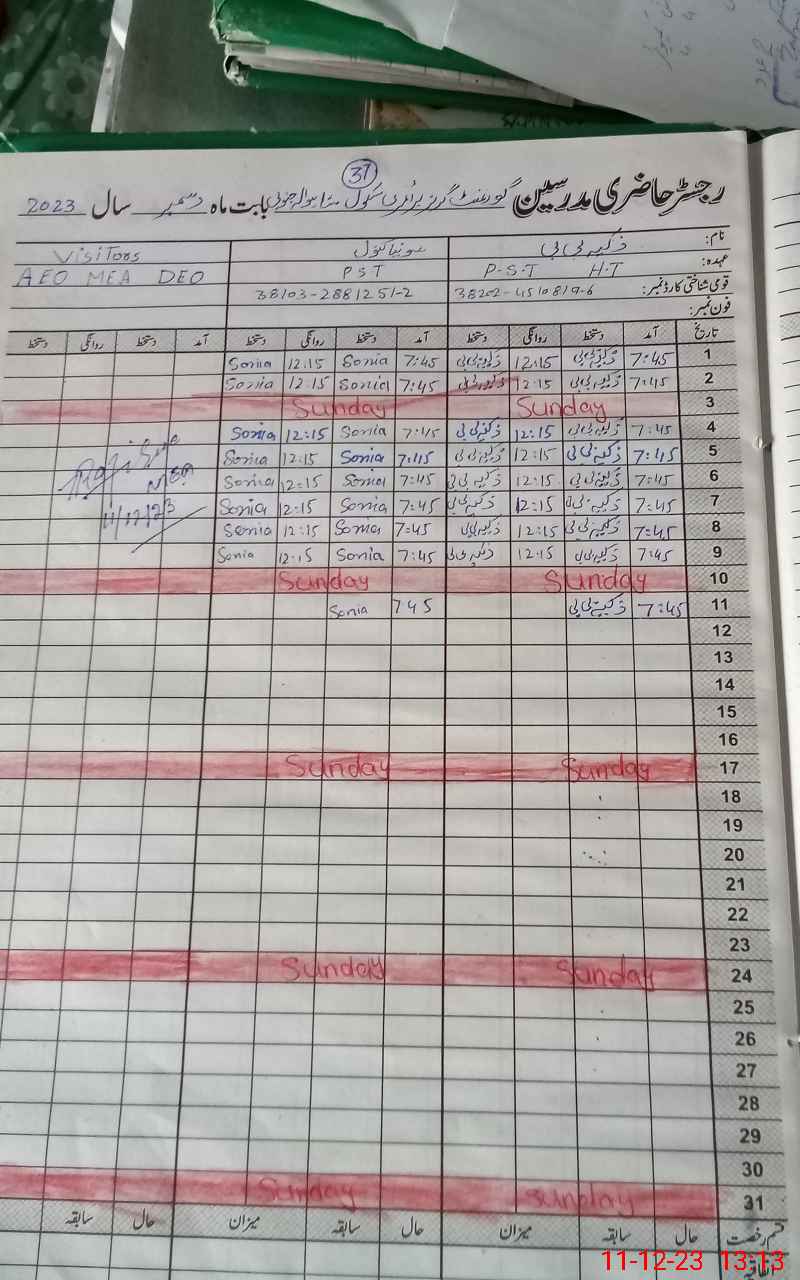 37
رجسٹر حاضری مدرسین گورنمنٹ گرلز پرائمری سکول بابت ماہ دسمبر سال 2023
نام: ذکیہ بی بی سونیا کنول Visitors
عہدہ: P.S.T H.T PST AEO MEA DEO
قومی شناختی کارڈ نمبر: 38202-4510819-6 38103-2881251-2
فون نمبر:
تاریخ آمد دستخط روانگی دستخط آمد دستخط روانگی دستخط آمد دستخط روانگی دستخط
1 7:45 ذکیہ بی بی 12:15 ذکیہ بی بی 7:45 Sonia 12:15 Sonia
2 7:45 ذکیہ بی بی 12:15 ذکیہ بی بی 7:45 Sonia 12:15 Sonia
3 Sunday Sunday
4 7:45 ذکیہ بی بی 12:15 ذکیہ بی بی 7:45 Sonia 12:15 Sonia
5 7:45 ذکیہ بی بی 12:15 ذکیہ بی بی 7:45 Sonia 12:15 Sonia
6 7:45 ذکیہ بی بی 12:15 ذکیہ بی بی 7:45 Sonia 12:15 Sonia MEA
7 7:45 ذکیہ بی بی 12:15 ذکیہ بی بی 7:45 Sonia 12:15 Sonia 11/12/23
8 7:45 ذکیہ بی بی 12:15 ذکیہ بی بی 7:45 Sonia 12:15 Sonia
9 7:45 ذکیہ بی بی 12:15 ذکیہ بی بی 7:45 Sonia 12:15 Sonia
10 Sunday Sunday
11 7:45 ذکیہ بی بی 7 45 Sonia
12
13
14
15
16
17 Sunday Sunday
18
19
20
21
22
23
24 Sunday Sunday
25
26
27
28
29
30
31 Sunday Sunday
قسم رخصت حال سابقہ میزان حال سابقہ میزان حال سابقہ
اتفاقیہ
11-12-23 13:13